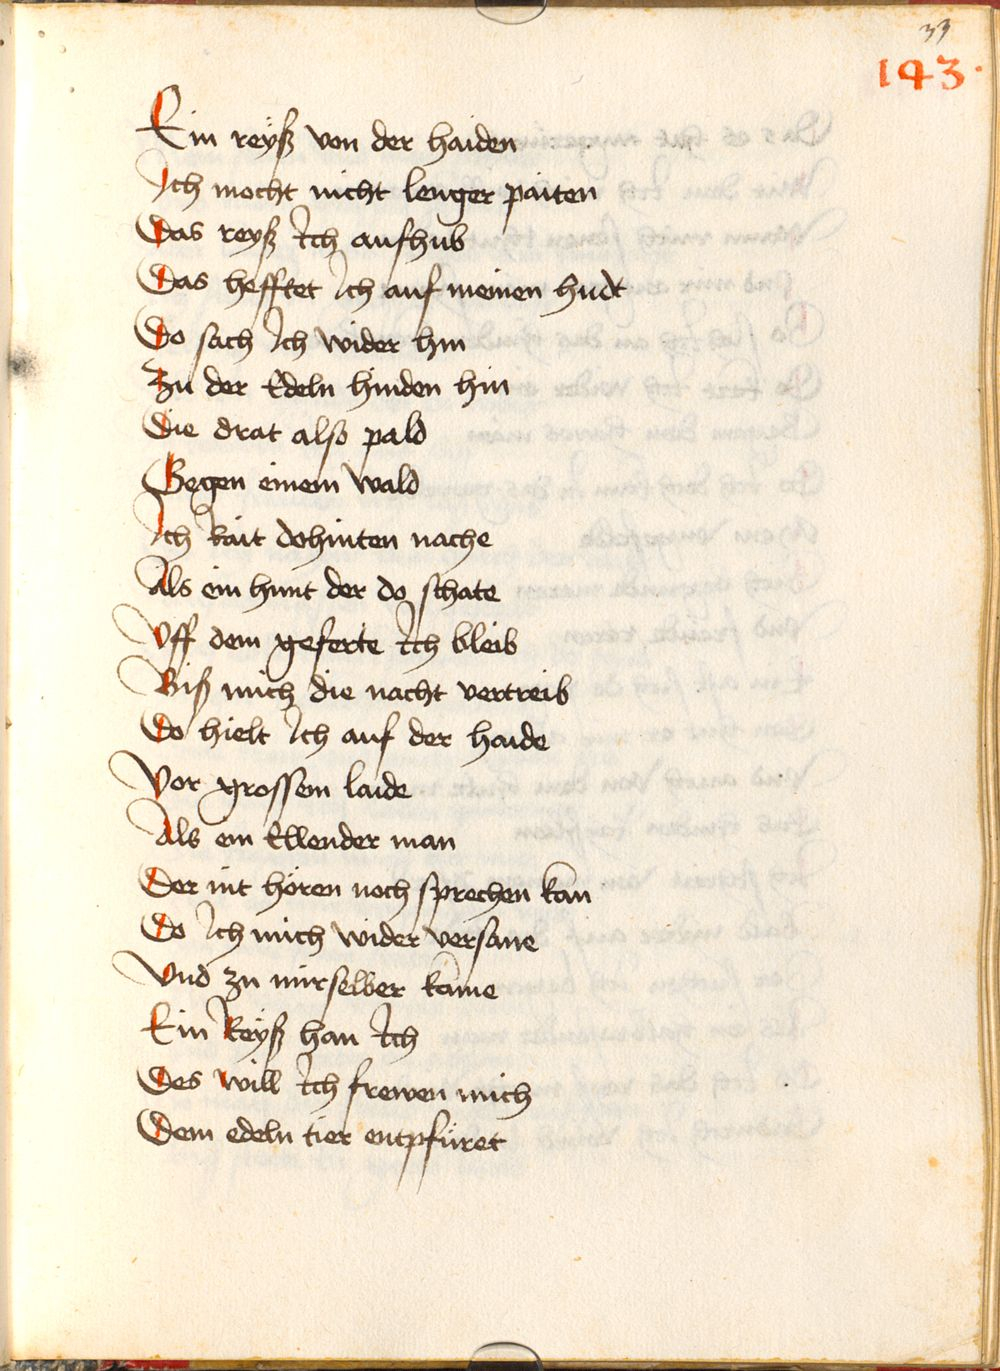 33
143
Ein reyß von der haiden
Ich mocht nicht lenger paiten
Das reyß Ich aufhub
Das hefftet Ich auf meinen hudt
Do sach Ich wider hin
Zu der Edeln hinden hin
Die drat also pald
Gegen einem wald
Ich Rait dohinten nache
Als ein hunt der do schate
Vff dem geferte Ich bleib
Biß mich die nacht vertreib
Do hielt Ich auf der haide
Vor grossem laide
Als ein Ellender man
Der nit hören noch sprechen kan
Do Ich mich wider versane
Vnd zu mir selber kame
Ein Reyß han Ich
Des will Ich frewen mich
Dem edeln tier entpfüret